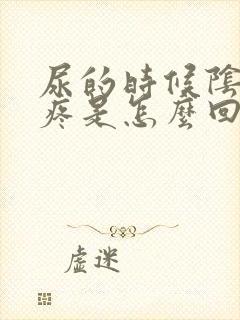 尿的時候陰
疼是怎麼回
虛迷